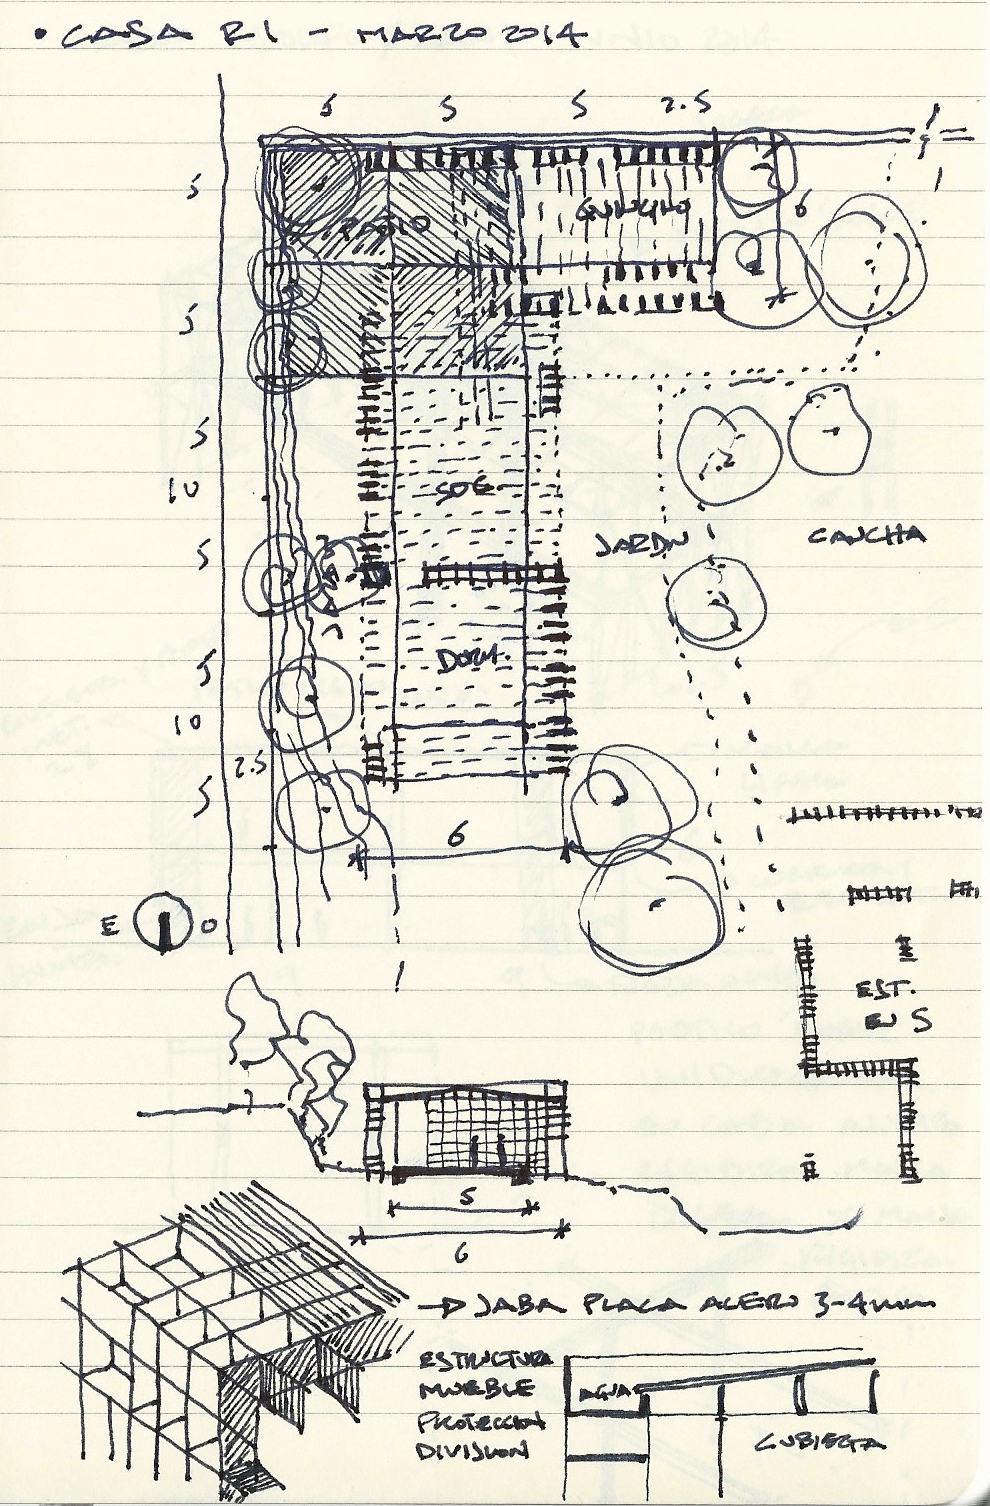 • CASA R1 - MARZO 2014
5 5 5 2.5
5
PATIO
QUINCHO
6
5
5
10
SOE
JARDN
CANCHA
5
5
DORM.
10
2.5
5
6
E O
EST.
EN S
5
6
→ JABA PLACA ACERO 3-4mm
ESTRUCTURA
MUEBLE
PROTECCION
DIVISION
AGUAS
CUBIERTA